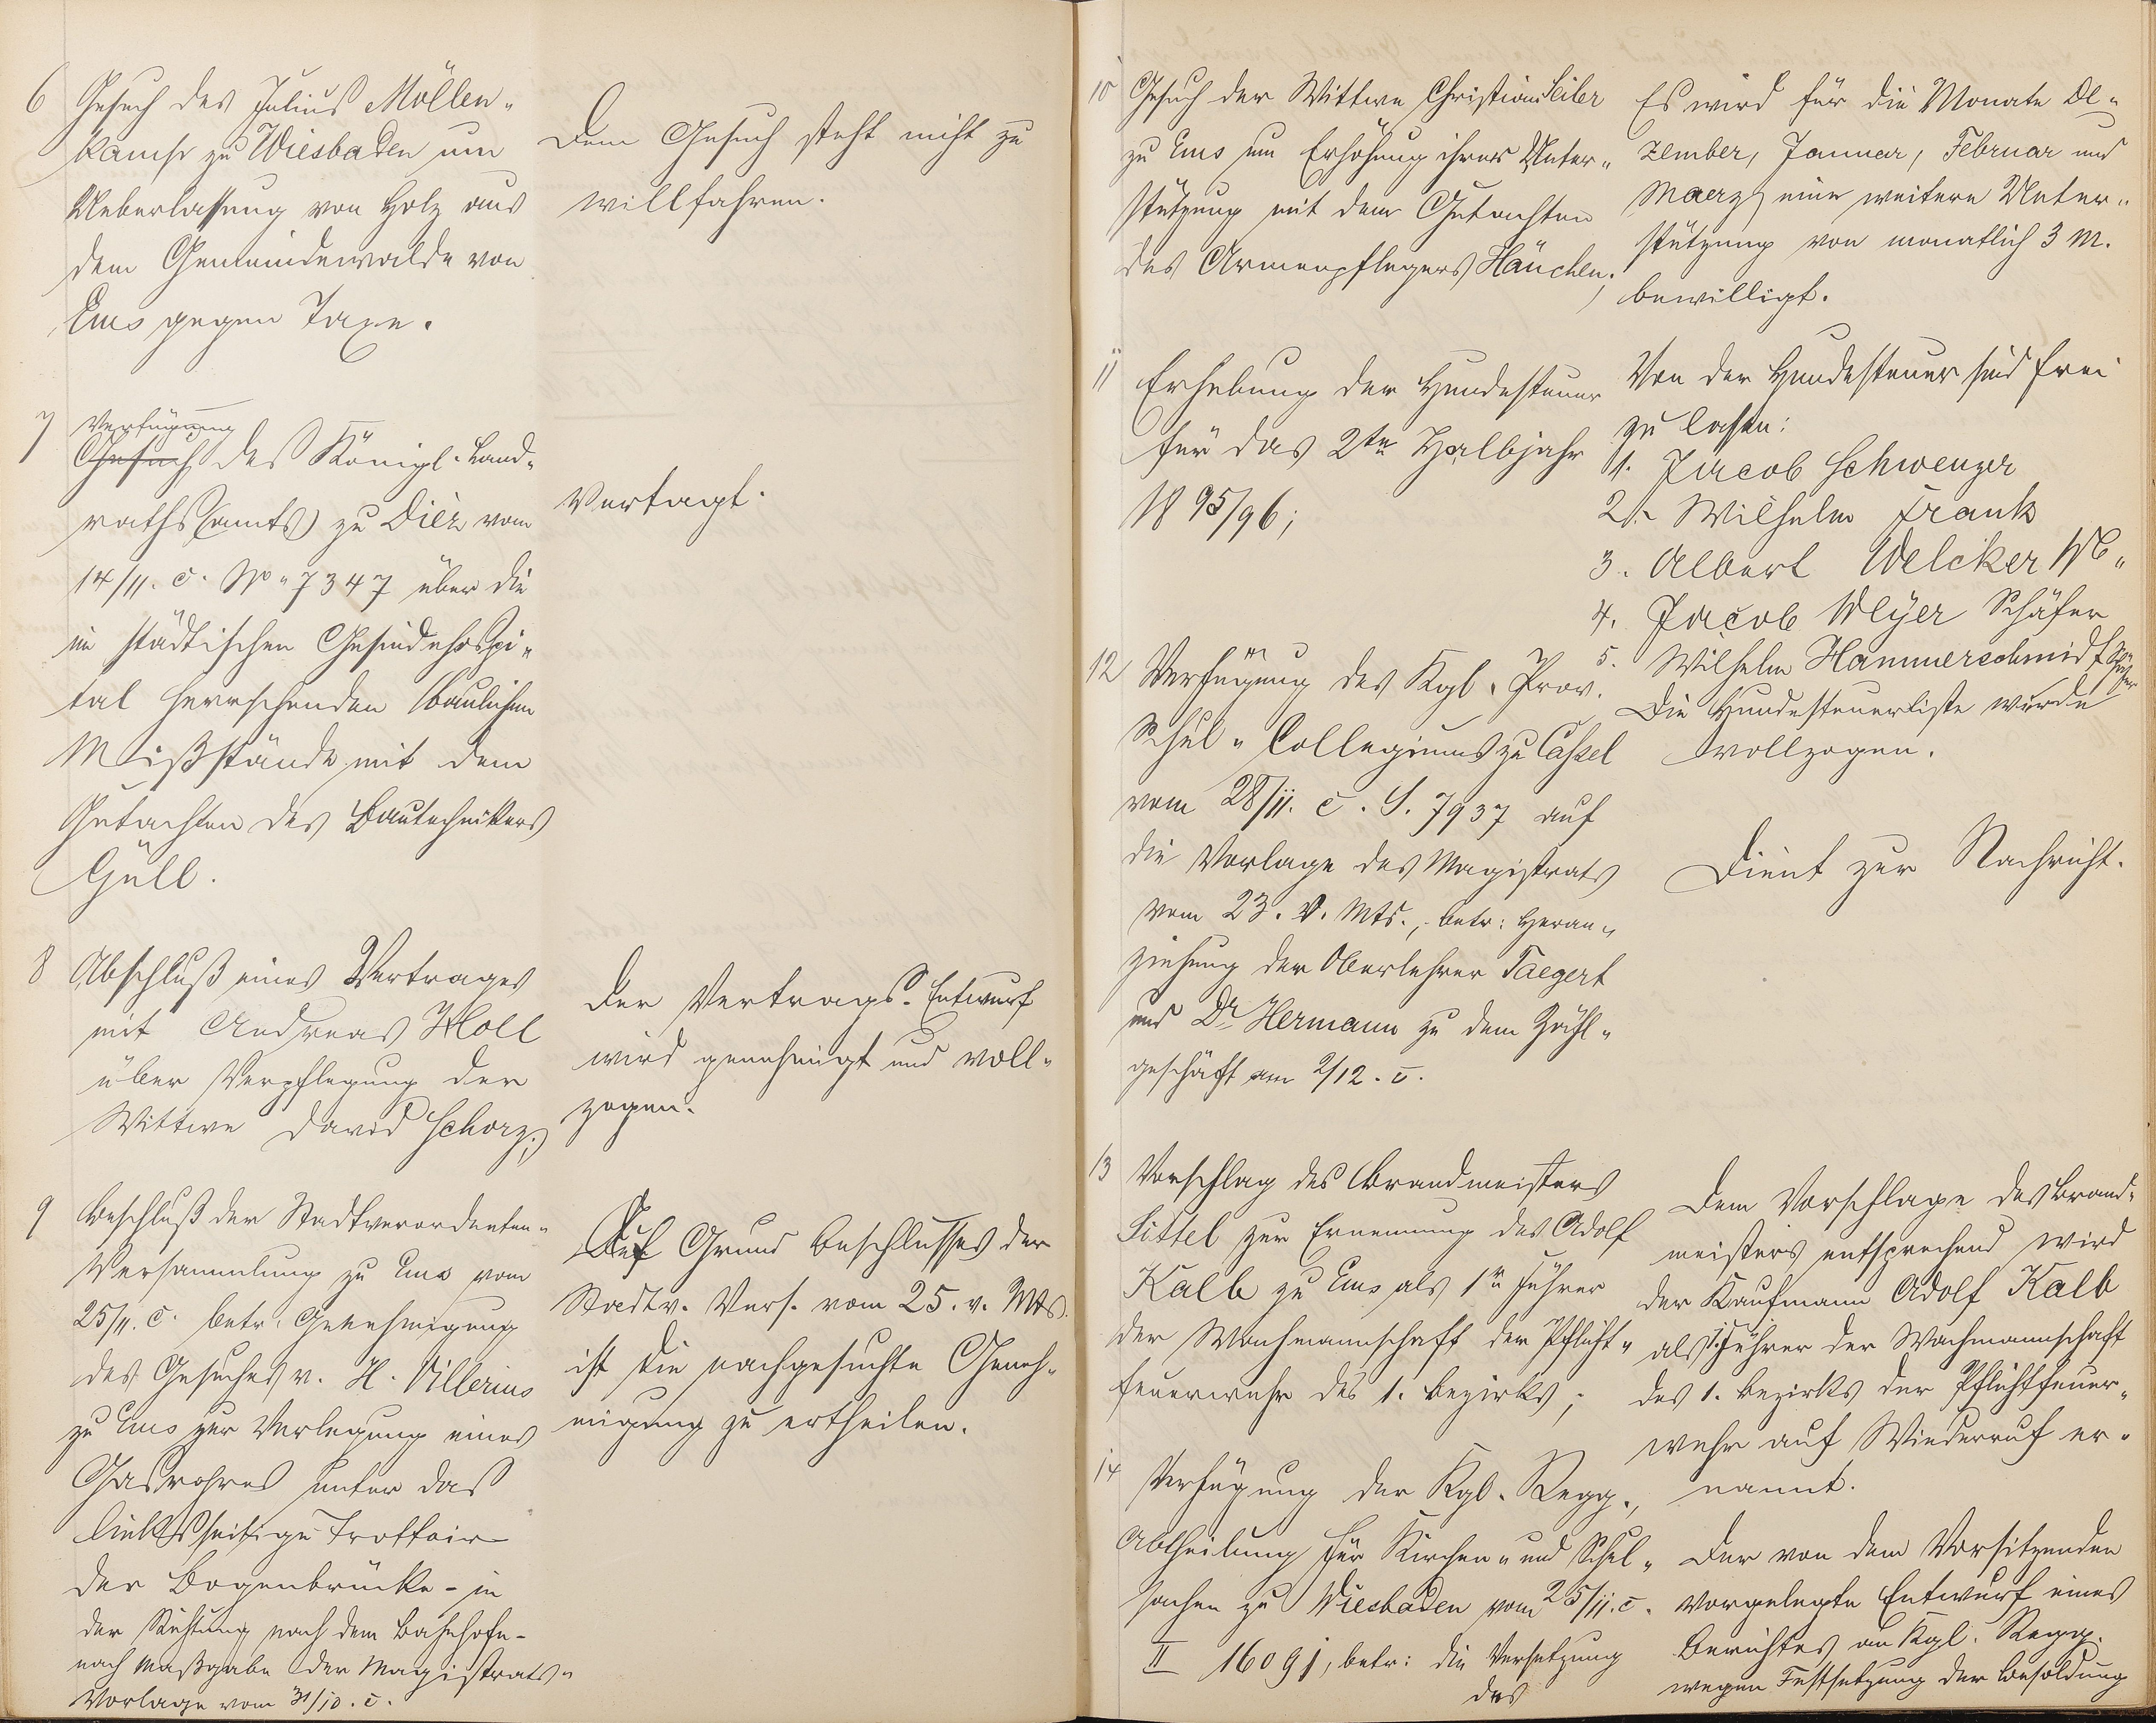 6 Gesuch des Julius Möllen-
kamp zu Wiesbaden um
Ueberlassung von Holz aus
dem Gemeindewalde von
Ems gegen Taxe.
Dem Gesuch steht nicht zu
willfahren.
7 Verfügung
Gesuch des Königl. Land-
raths(amts) zu Diez vom
14/11. c. No. 7347 über die
im städtischen Gesindehospi-
tal herrschenden baulichen
Mißstände mit dem
Gutachten des Bautechnikers
Güll.
Vertagt.
8 Abschluß eines Vertrages
mit Andreas Noll
über Verpflegung der
Wittwe David Schorz;
Der Vertrags-Entwurf
wird genehmigt und voll-
zogen.
9 Beschluß der Stadtverordneten-
Versammlung zu Ems vom
25/11. c. betr. Genehmigung
des Gesuches v. H. Villerius
zu Ems zur Verlegung eines
Gasrohres unter das
linksseitige Trottoir
der Bogenbrücke - in
der Richtung nach dem Bahnhofe -
nach Maßgabe der Magistrats-
Vorlage vom 31/10. c.
Auf Grund Beschlusses der
Stadtv. Vers. vom 25. v. Mts.
ist die nachgesuchte Geneh-
migung zu ertheilen.
10 Gesuch der Wittwe Christian Seiler
zu Ems um Erhöhung ihrer Unter-
stützung mit dem Gutachten
des Armenpflegers Häuchen;
Es wird für die Monate De-
zember, Januar, Februar und
Maerz eine weitere Unter-
stützung von monatlich 3 M.
bewilligt.
11 Erhebung der Hundesteuer
für das 2te Halbjahr
1895/96;
Von der Hundesteuer sind frei
zu lassen:
1. Jacob Schwenzer
2. Wilhelm Frank
3. Albert Welcker
4. Jacob Meyer Schäfer
5. Wilhelm Hammerschmidt Schäfer
Die Hundesteuerliste wurde
vollzogen.
12 Verfügung des Kgl. Prov.
Schul-Collegiums zu Cassel
vom 28/11. c. S. 7937 auf
die Vorlage des Magistrats
vom 23. v. Mts., betr: Heran-
ziehung der Oberlehrer Taegert
und Dr Hermann zu dem Zähl-
geschäft am 2/12. c.
Dient zur Nachricht.
13 Vorschlag des Brandmeisters
Sittel zur Ernennung des Adolf
Kalb zu Ems als 1n Führer
der Wachmannschaft der Pflicht-
feuerwehr des 1. Bezirks;
Dem Vorschlage des Brand-
meisters entsprechend wird
der Kaufmann Adolf Kalb
als 1. Führer der Wachmannschaft
des 1. Bezirks der Pflichtfeuer-
wehr auf Wiederruf er-
nannt.
14 Verfügung der Kgl. Regg.,
Abtheilung für Kirchen- und Schul-
sachen zu Wiesbaden vom 25/11. c.
II 16091, betr: die Versetzung
des
Der von dem Vorsitzenden
vorgelegte Entwurf eines
Berichtes an Kgl. Regg.
wegen Festsetzung der Besoldung